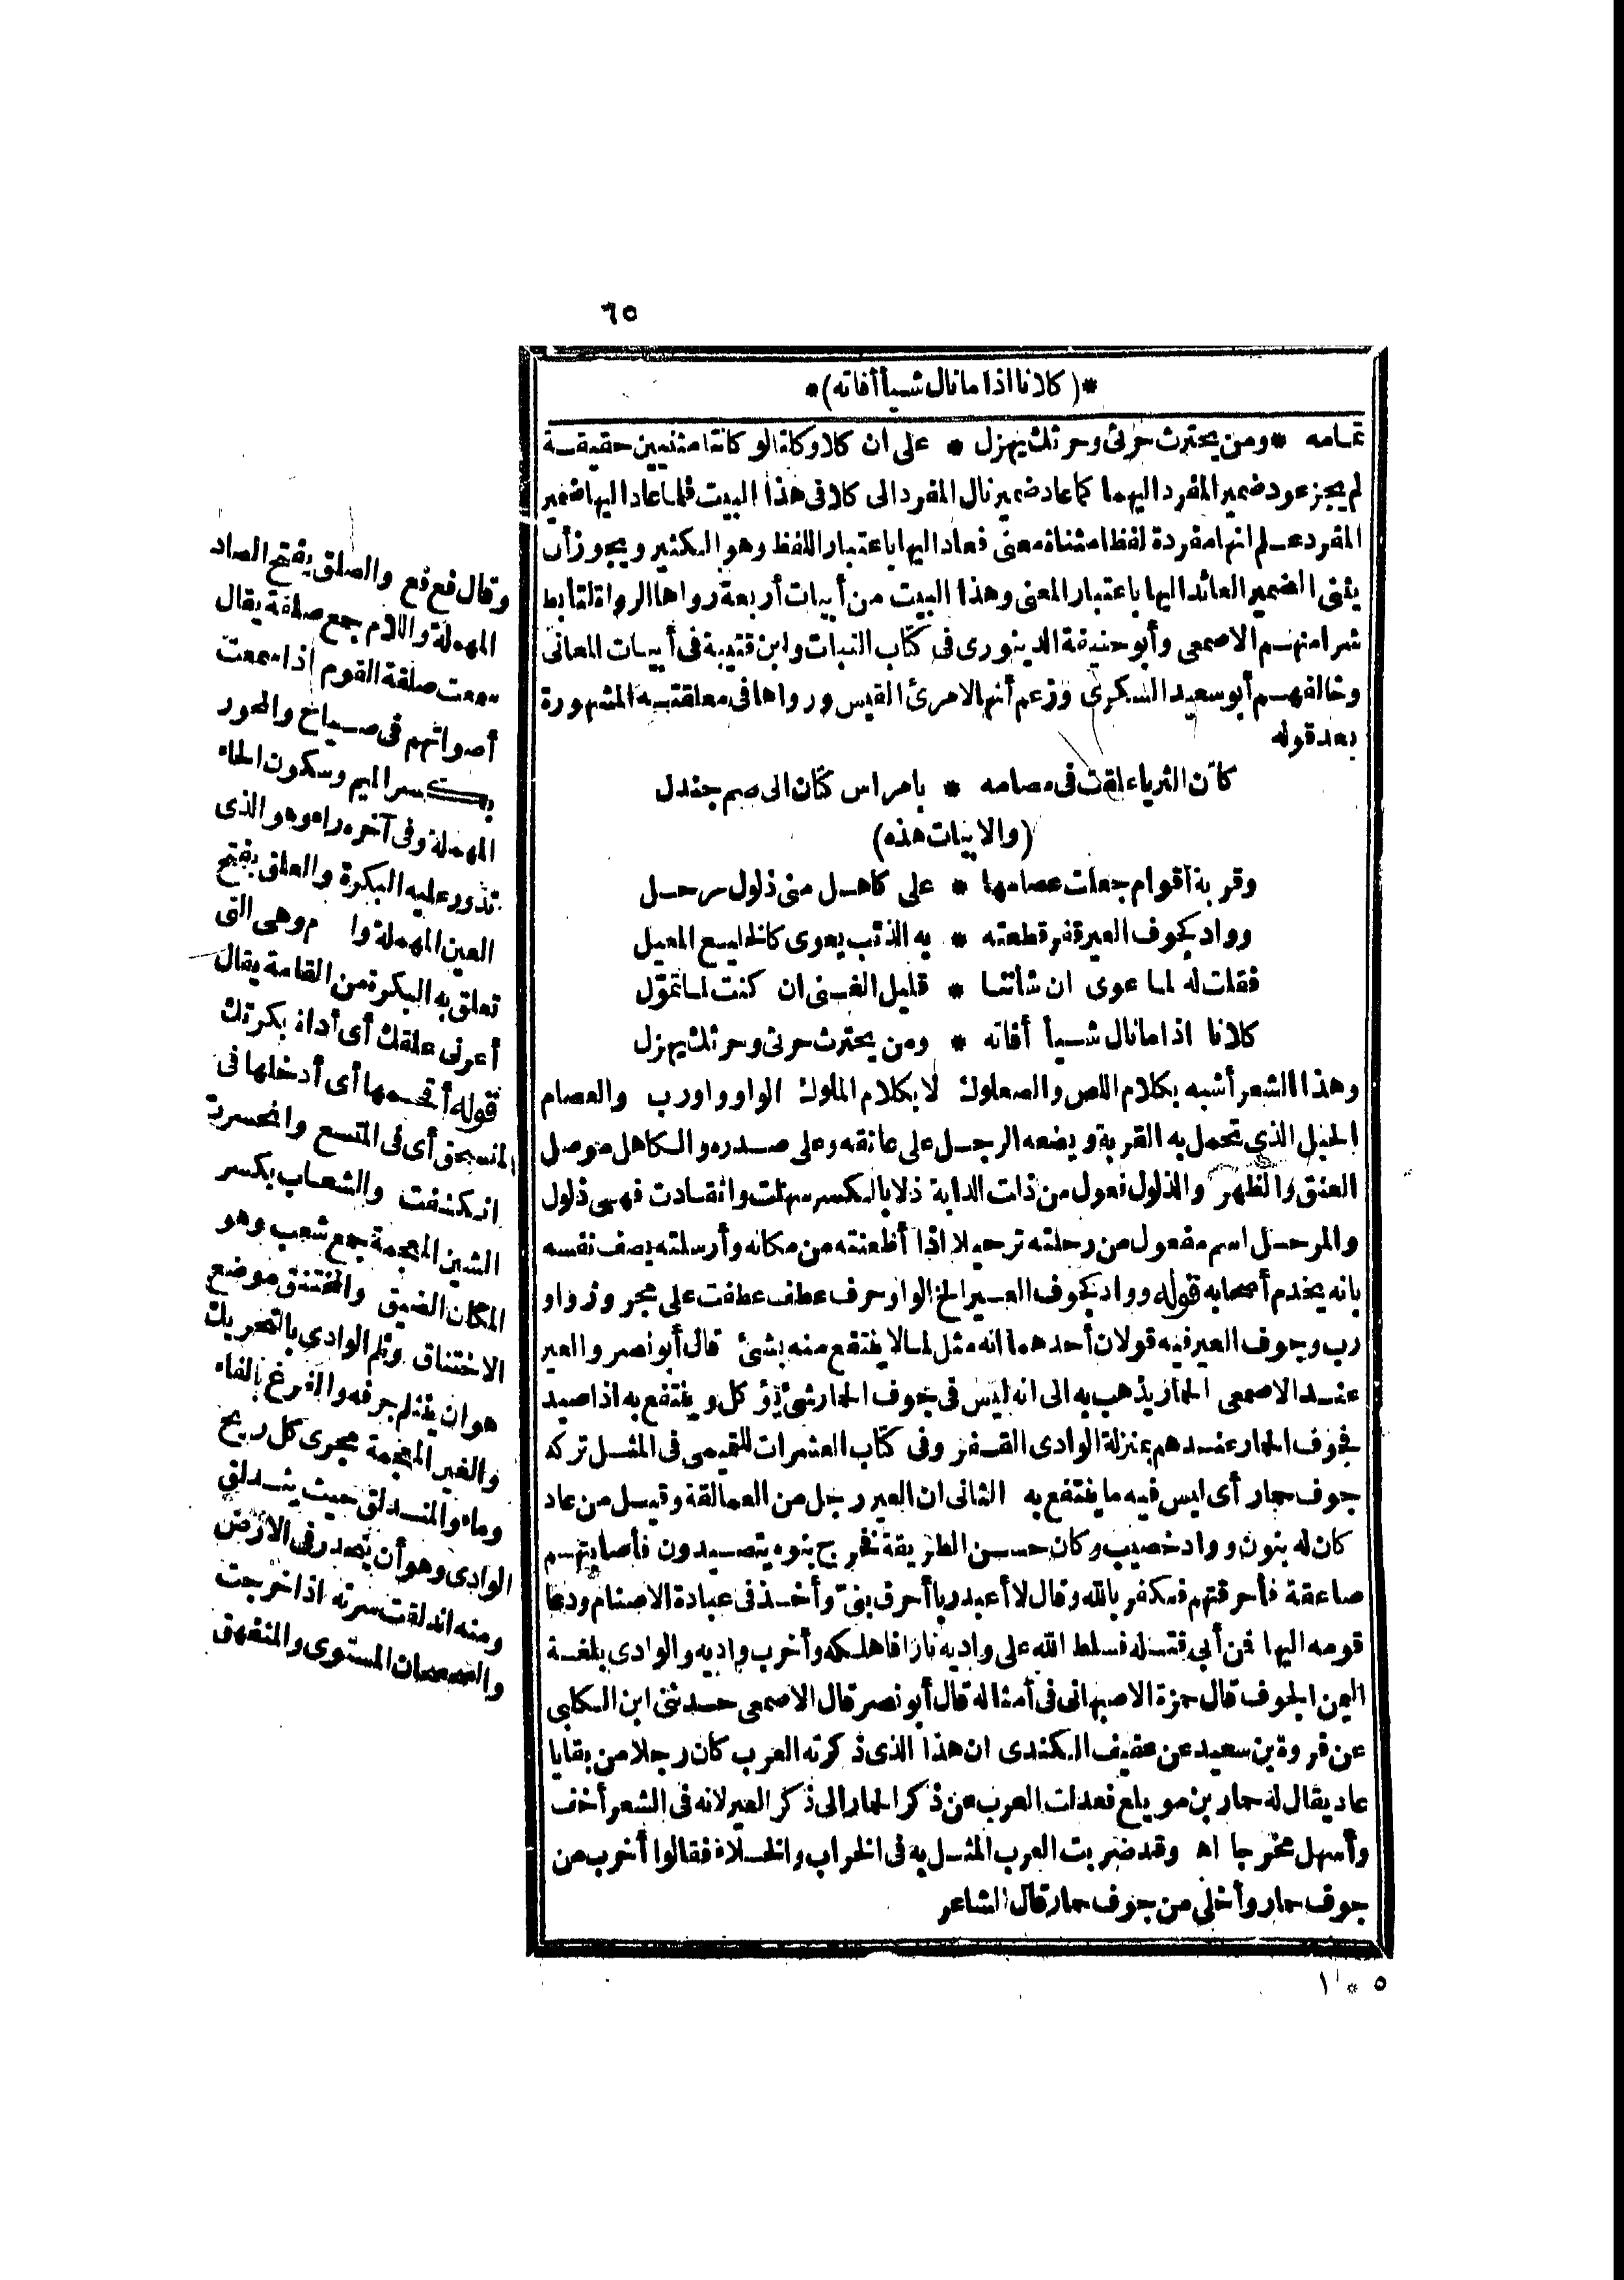 ٦٥
*(كلانا اذا ما نال شيأ أفاته)*
تمامه * ومن يحترث حرثى وحرثك يهزل * على ان كلا وكلتا لو كانتا مثنيين حقيقة
لم يجز عود ضمير المفرد اليهما كما عاد ضمير نال المفرد الى كلا فى هذا البيت فلما عاد اليها ضمير
المفرد علم انها مفردة لفظا مثناة معنى فعاد اليها باعتبار اللفظ وهو الكثير ويجوز أن
يثنى الضمير العائد اليها باعتبار المعنى وهذا البيت من أبيات أربعة رواها الرواة لتأبط
شرا منهم الاصمعى وأبو حنيفة الدينورى فى كتاب النبات وابن قتيبة فى أبيات المعانى
وخالفهم أبو سعيد السكرى وزعم أنها لامرئ القيس ورواها فى معلقته المشهورة
بعد قوله
كأن الثريا علقت فى مصامه * بامراس كتان الى صم جندل
(والابيات هذه)
وقربة أقوام جعلت عصامها * على كاهل منى ذلول مرحل
وواد كجوف العير قفر قطعته * به الذئب يعوى كالخليع المعيل
فقلت له لما عوى ان شأننا * قليل الغنى ان كنت لما تموّل
كلانا اذا ما نال شيأ أفاته * ومن يحترث حرثى وحرثك يهزل
وهذا الشعر أشبه بكلام اللص والصعلوك لا بكلام الملوك الواو واو رب والعصام
الحبل الذى تحمل به القربة ويضعه الرجل على عاتقه وعلى صدره والكاهل موصل
العنق والظهر والذلول فعول من ذلت الدابة ذلا بالكسر سهلت وانقادت فهى ذلول
والمرحل اسم مفعول من رحلته ترحيلا اذا أظعنته من مكانه وأرسلته يصف نفسه
بانه يخدم أصحابه قوله وواد كجوف العير الخ الواو حرف عطف عطفت على مجرور واو
رب وجوف العير فيه قولان أحدهما انه مثل لما لا ينتفع منه بشئ قال أبو نصر والعير
عند الاصمعى الحمار يذهب به الى انه ليس فى جوف الحمار شئ يؤكل وينتفع به اذا صيد
فجوف الحمار عندهم بمنزلة الوادى القفر وفى كتاب العشرات للتميمى فى المثل تركه
جوف حمار أى ليس فيه ما ينتفع به الثانى ان العير رجل من العمالقة وقيل من عاد
كان له بنون وواد خصيب وكان حسن الطريقة فخرج بنوه يتصيدون فأصابتهم
صاعقة فأحرقتهم فكفر بالله وقال لا أعبد ربا أحرق بنىّ وأخذ فى عبادة الاصنام ودعا
قومه اليها فمن أبى قتله فسلط الله على واديه نارا فاهلكه وأخرب واديه والوادى بلغة
اليمن الجوف قال حمزة الاصبهانى فى أمثاله قال أبو نصر قال الاصمعى حدثنى ابن الكلبى
عن فروة بن سعيد عن عفيف الكندى ان هذا الذى ذكرته العرب كان رجلا من بقايا
عاد يقال له حمار بن مويلع فعدلت العرب عن ذكر الحمار الى ذكر العير لانه فى الشعر أخف
وأسهل مخرجا اه وقد ضربت العرب المثل به فى الخراب والخلاء فقالوا أخرب من
جوف حمار وأخلى من جوف حمار قال الشاعر
وقال فع فع والصلق بفتح الصاد
المهملة واللام جمع صلقة يقال
سمعت صلقة القوم اذا سمعت
أصواتهم فى صياح والمحور
بكسر الميم وسكون الحاء
المهملة وفى آخره راء وهو الذى
تدور عليه البكرة والعلق بفتح
العين المهملة وا م وهى التى
تعلق به البكرة من القامة يقال
أعرنى علقك أى أداة بكرتك
قوله أقحمها أى أدخلها فى
المنسحق أى فى المتسع وانحسرت
انكشفت والشعاب بكسر
الشين المعجمة جمع شعب وهو
المكان الضيق والمختنق موضع
الاختناق وثلم الوادى بالتحريك
هو ان ينثلم جرفه والفرغ بالفاء
والغين المعجمة مجرى كل ريح
وماء والمندلق حيث يندلق
الوادى وهو أن ينحدر فى الارض
ومنه اندلقت سرته اذا خرجت
والصحصحان المستوى والمنفهق
٥ * ١